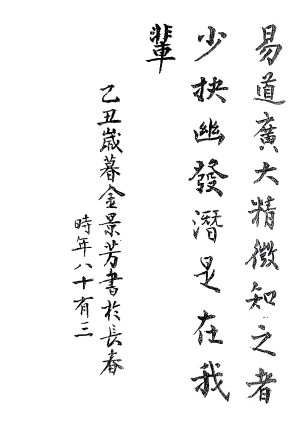 易道廣大精微知之者
少抉幽發潛是在我
輩
乙丑歲暮金景芳書於長春
時年八十有三